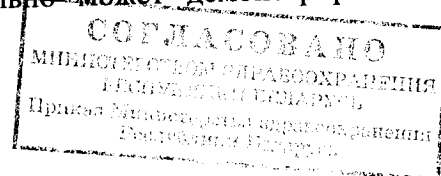 может
СОГЛАСОВАНО
МИНИСТЕРСТВОМ ЗДРАВООХРАНЕНИЯ
РЕСПУБЛИКИ БЕЛАРУСЬ
Приказ Министерства здравоохранения
Республики Беларусь